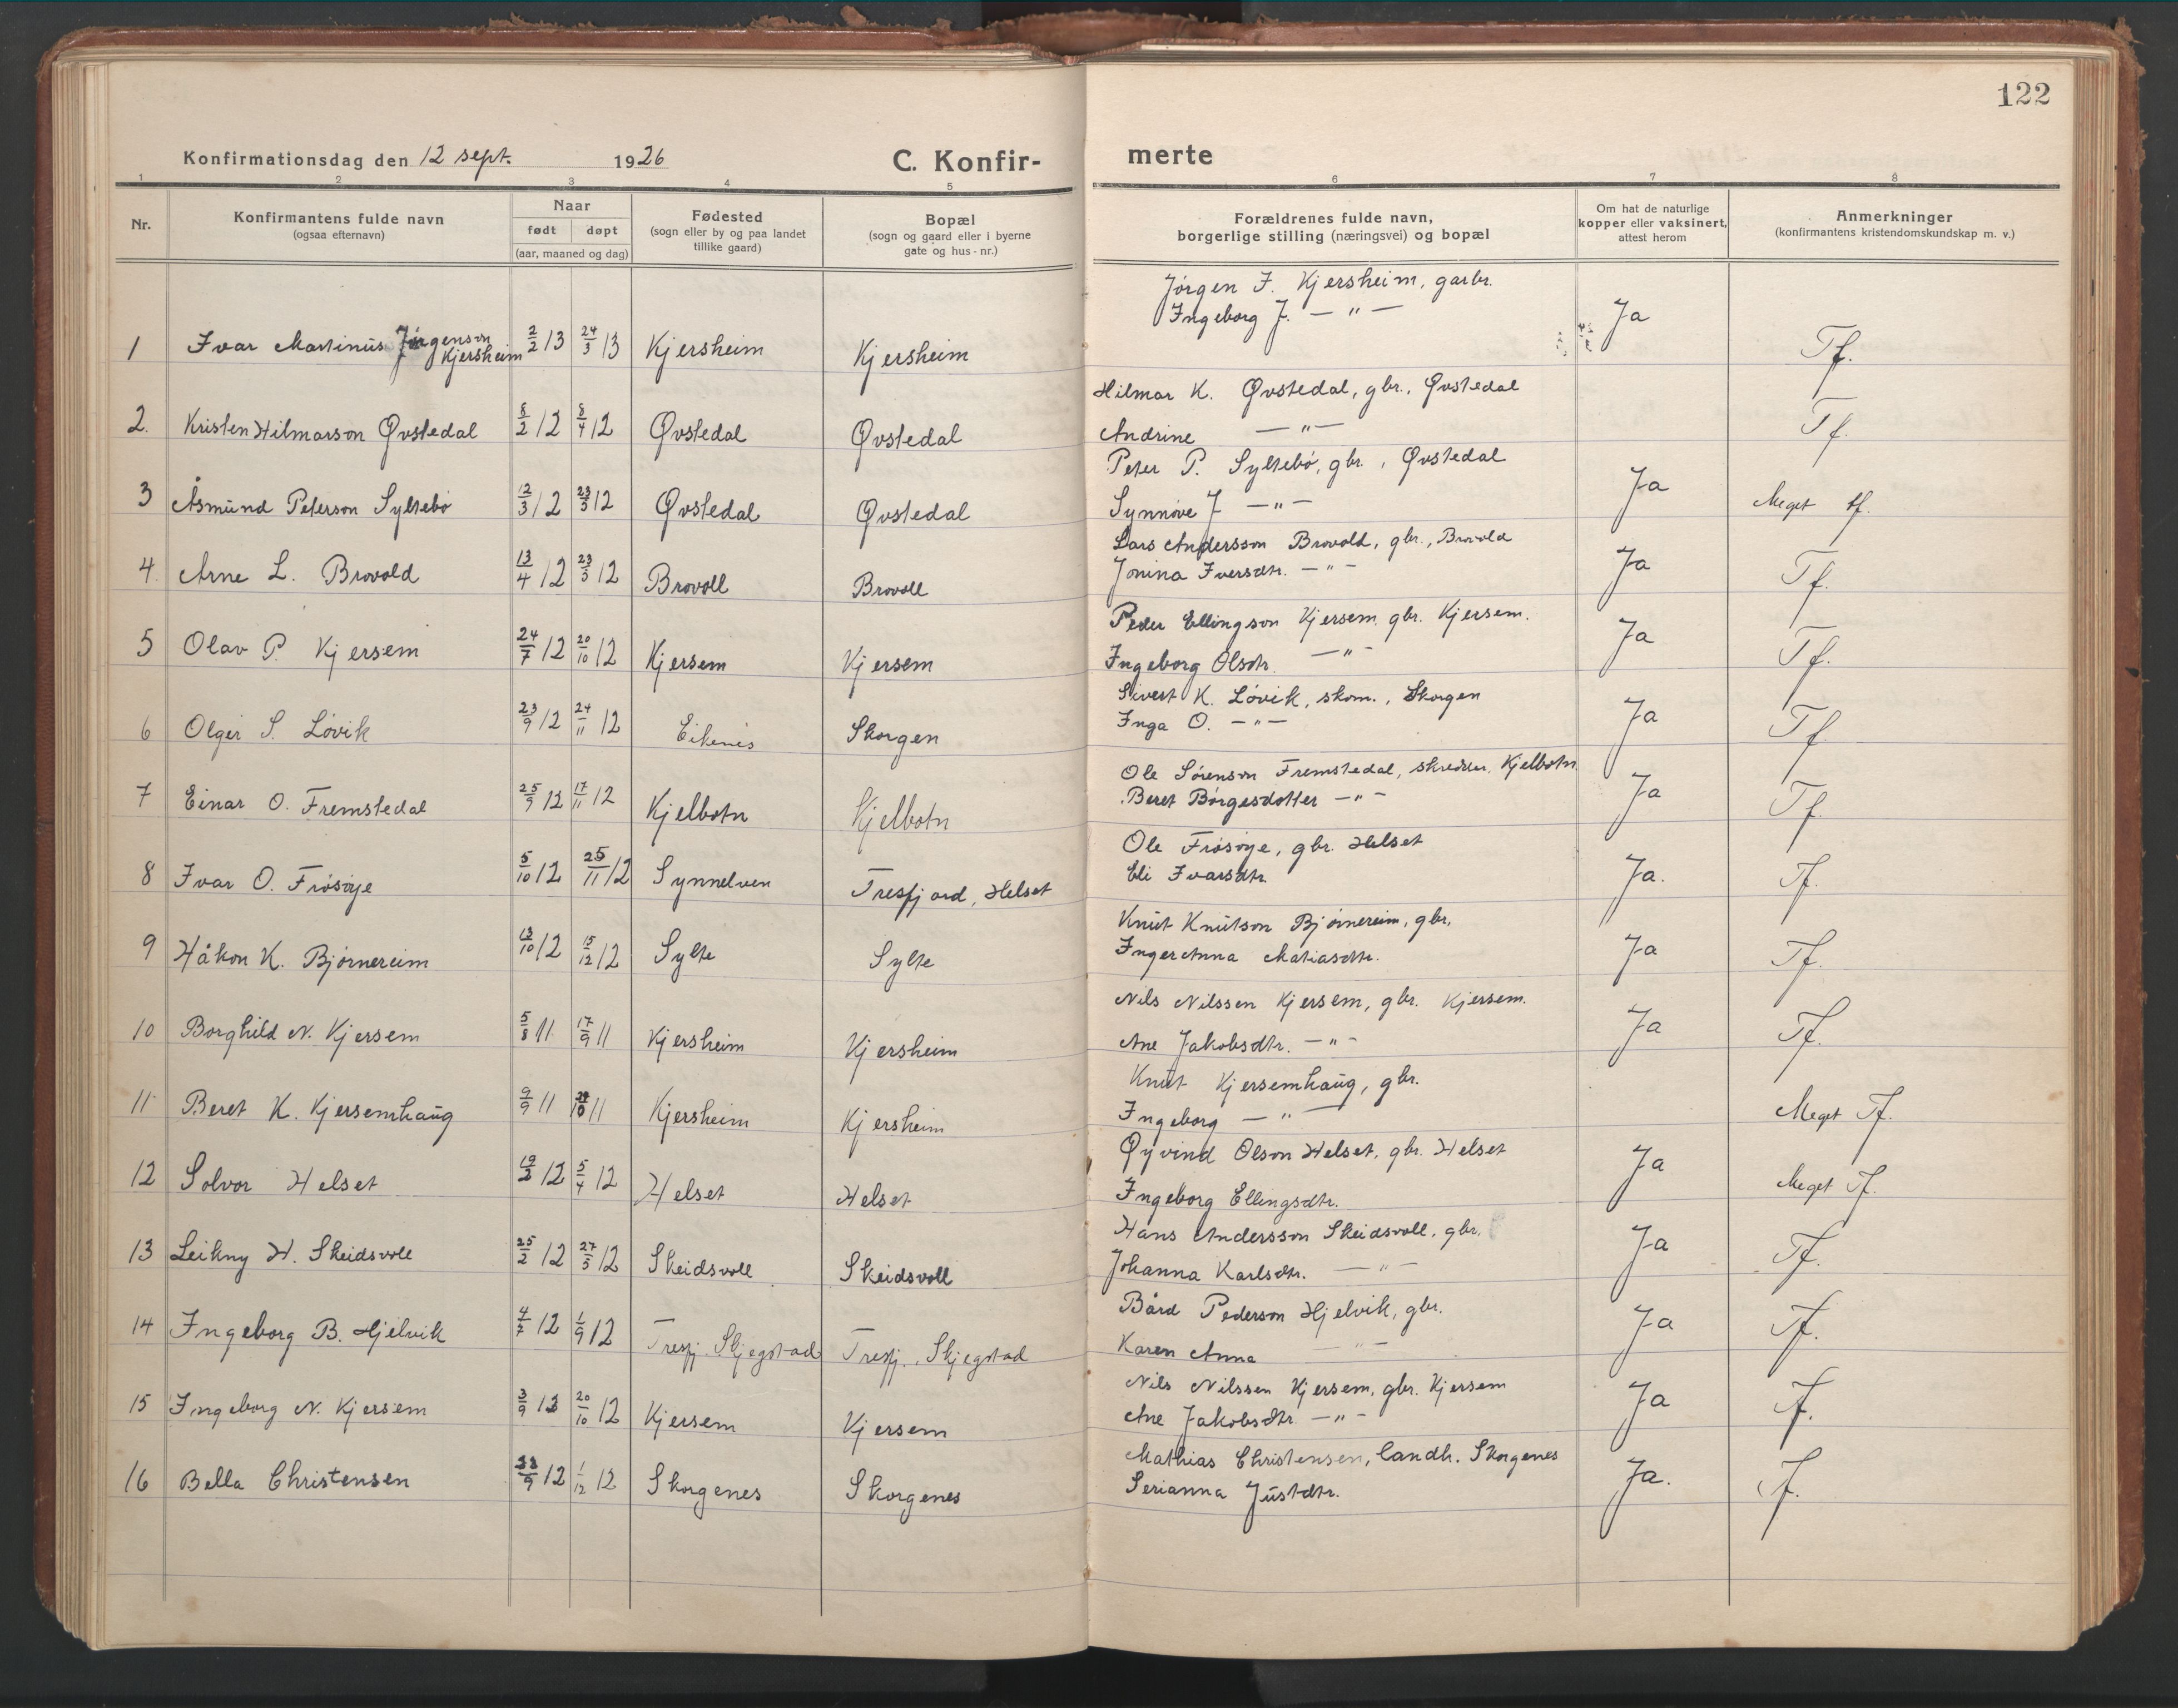 122
Konfirmationsdag den 12 sept. 1926 C. Konfir- merte
1 2 3 4 5 6 7 8
Nr. | Konfirmantens fulde navn (ogsaa efternavn) | Naar født | døpt (aar, maaned og dag) | Fødested (sogn eller by og paa landet tillike gaard) | Bopæl (sogn og gaard eller i byerne gate og hus-nr.) | Forældrenes fulde navn, borgerlige stilling (næringsvei) og bopæl | Om hat de naturlige kopper eller vaksinert, attest herom | Anmerkninger (konfirmantens kristendomskundskap m. v.)
Jørgen I. Kjersheim, garbr.
Ingeborg J. — " —
1 Ivar Martinus Jørgenson Kjersheim 2/2 13 24/3 13 Kjersheim Kjersheim Ja Tf.
Hilmar K. Øvstedal, gbr., Øvstedal
2. Kristen Hilmarson Øvstedal 8/2 12 8/4 12 Øvstedal Øvstedal Andrine — " — Tf.
Peter P. Syltebø, gbr., Øvstedal
3 Åsmund Peterson Syltebø 12/3 12 23/3 12 Øvstedal Øvstedal Synnøve J — " — Ja Meget tf.
Lars Andersson Brovold, gbr., Brovold
4. Arne L. Brovold 13/4 12 23/3 12 Brovoll Brovoll Jonina Iversdtr. — " — Ja Tf.
Peder Ellingson Kjersem gbr. Kjersem.
5 Olav P. Kjersem 24/7 12 20/10 12 Kjersem Kjersem Ingeborg Olsdtr. — " — Ja Tf.
Sivert K. Løvik, skom., Skorgen
6 Olger S. Løvik 23/9 12 24/11 12 Eikenes Skorgen Inga O. — " — Ja Tf
Ole Sørenson Fremstedal, skredder, Kjelbotn
7 Einar O. Fremstedal 25/9 12 17/11 12 Kjelbotn Kjelbotn Beret Børgesdotter — " — Ja Tf
Ole Frøsøye, gbr. Helset
8 Ivar O. Frøsøye 5/10 12 25/11 12 Synnelven Tresfjord, Helset Eli Ivarsdtr. Ja. Tf.
Knut Knutson Bjørnereim, gbr.
9 Håkon K. Bjørnereim 13/10 12 15/12 12 Sylte Sylte Inger Anna Matiasdtr. Ja Tf.
Nils Nilssen Kjersem, gbr. Kjersem.
10 Borghild N. Kjersem 5/8 11 17/9 11 Kjersheim Kjersheim Ane Jakobsdtr. — " — Ja Tf.
Knut Kjersemhaug, gbr.
11 Beret K. Kjersemhaug 9/9 11 /10 11 Kjersheim Kjersheim Ingeborg — " — Meget Tf.
Øyvind Olson Helset, gbr. Helset
12 Solvor Helset 19/2 12 5/4 12 Helset Helset Ingeborg Ellingsdtr. Ja Meget Tf.
Hans Andersson Skeidsvoll, gbr.
13 Leikny H. Skeidsvoll 25/2 12 27/5 12 Skeidsvoll Skeidsvoll Johanna Karlsdtr. — " — Ja Tf.
Bård Pederson Hjelvik, gbr.
14 Ingeborg B. Hjelvik 4/7 12 1/9 12 Tresfj. Skjegstad Tresfj., Skjegstad Karen Anna — " — Ja Tf.
Nils Nilssen Kjersem, gbr. Kjersem
15 Ingeborg N. Kjersem 3/9 12 20/10 12 Kjersem Kjersem Ane Jakobsdtr. — " — Ja Tf.
Mathias Christensen, landh. Skorgenes
16 Bella Christensen 23/9 12 1/12 12 Skorgenes Skorgenes Serianna Justdtr. Ja. Tf.